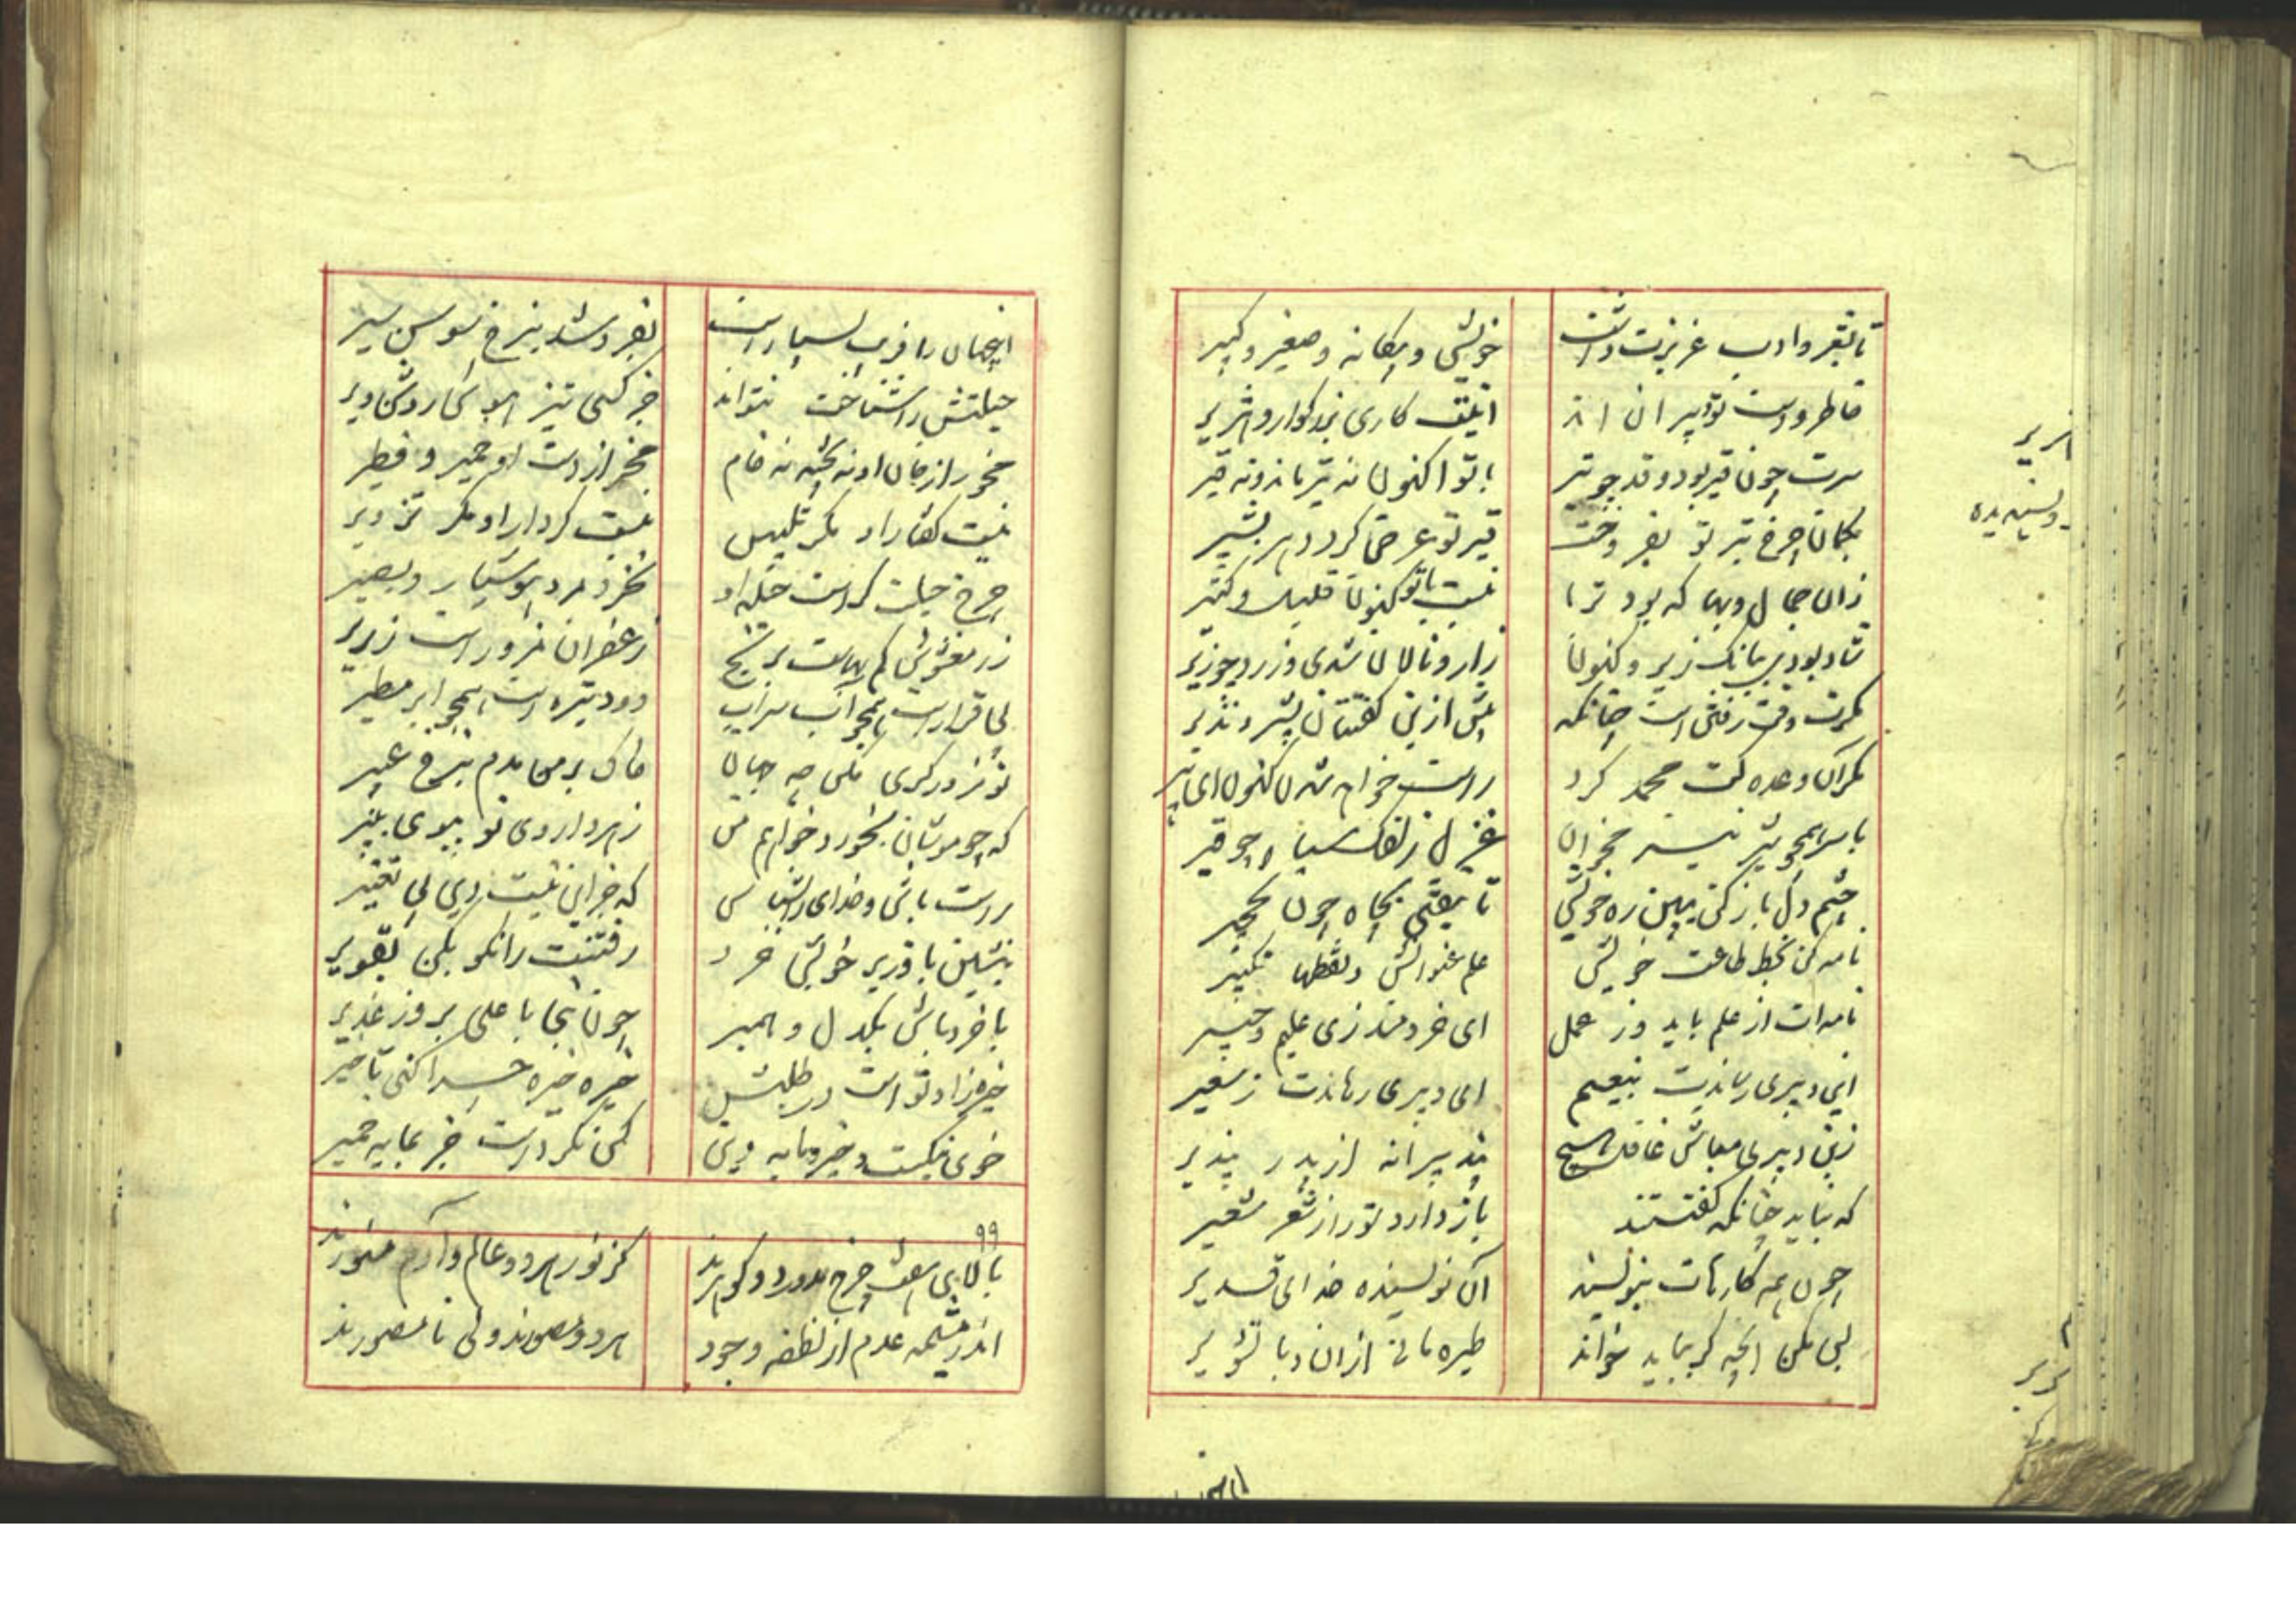 تا بقر و ادب عزیزت داشت خویش و بیگانه و صغیر و کبیر
اینت کاری بزرگوار و هژیر
سرت چون قیر بود و قد چو تیر با تو اکنون نه تیر ماند و نه قیر
بگمان چرخ تیر تو بفروخت قیر تو عرضه کرد دهر بشیر
زان جمال و بها که بود ترا نیست با تو کنون قلیل و کثیر
شاد بودی ببانگ زیر و کنون زار و نالان شدی و زرد چو زیر
مگرت وقت رفتن است چنانکه پیش ازین گفتشان بشیر و نذیر
مگر آن وعده کت محمد کرد راست خواهد شدن کنون ای پیر
با سر همچو شیر نیز مخوان غزل زلفک سیاه چو قیر
چشم دل باز کن ببین ره خویش تا نیفتی بچاه چون نخجیر
نامه کن بخط طاعت خویش علم عنوانش و نقطها تکبیر
نامه‌ات از علم باید وز عمل ای خردمند زی علیم و خبیر
این دبیری رساندت بنعیم این دبیری رهاندت ز سعیر
زین دبیری مباش غافل هیچ پند پیرانه از پدر بپذیر
که نباید چنانکه گفتستند باز دارد تو را ز شعر شعیر
چون همه کارهات بنویسد آن نویسنده خدای قدیر
پس مکن آنچه گر بباید خواند خیره مانی ازان و با تشویر
هژیر
پسندیده
این جهان را فریب بسیارست بفروشد بنرخ سوسن سیر
حیلتش را شناخت نتواند جز کسی تیز هوش و روشن ویر
مخور از خان او نه پخته نه خام مخر از دست او خمیر و فطیر
نیست گفتار او مگر تلبیس نیست کردار او مگر تزویر
چرخ حیلت گرست حیله او نخرد مرد هوشیار و بصیر
زر مغشوش کم بهاست برنج زعفران مزور است زریر
بی قرارست همچو آب سراب دود تیره است همچو ابر مطیر
خاک بر من مدم بنرخ عبیر
که چو موشان نخورد خواهم من زهر داروی تو ببوی پنیر
راست باش و خدای را بشناس که جز این نیست دین بی تغییر
بنشین با وزیر خویش خرد رفتنت را نکو بکن تقویر
با خرد باش یکدل و همبر چون نبی با علی بروز غدیر
خیره خیره چرا کنی تاخیر
خوی نیکست و خرد مایه دین کس نکردست جز بمایه خمیر
۹۹
بالای هفت چرخ مدور دو گوهرند کز نور هر دو عالم و آدم منورند
اندر مشیمه عدم از نطفه وجود هر دو مصورند ولی نامصورند